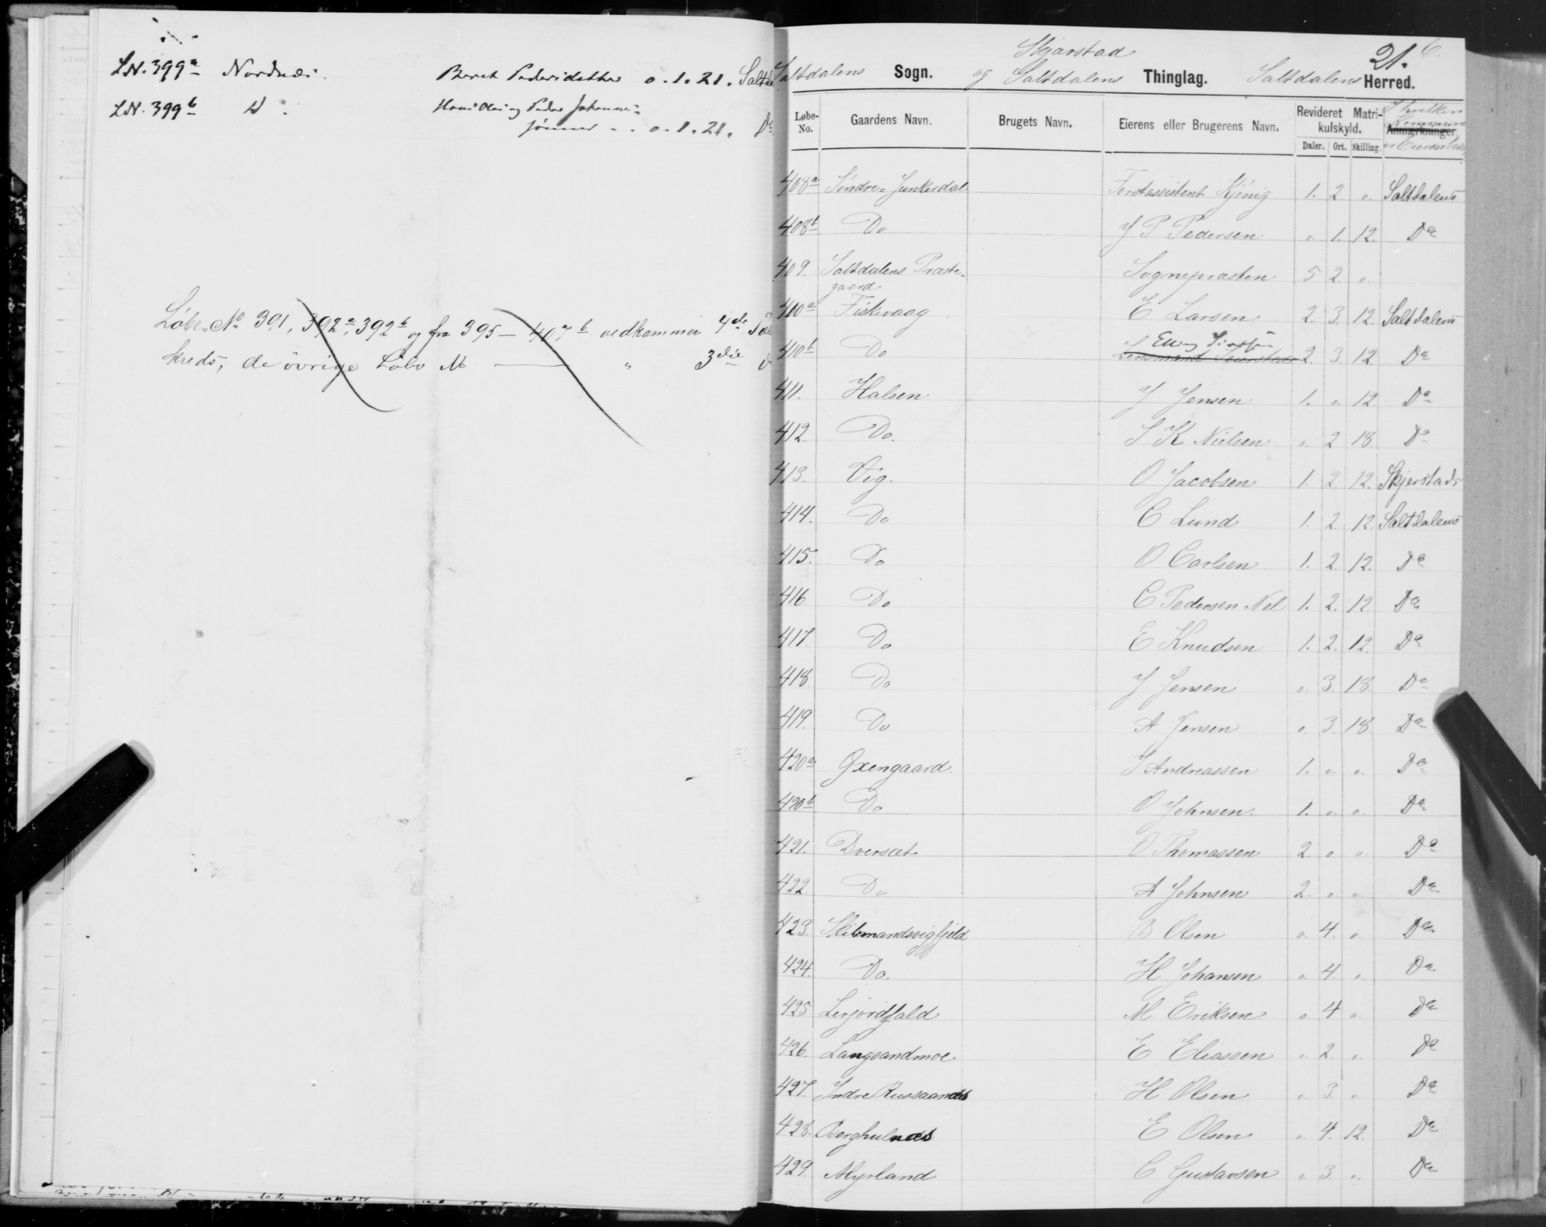 LN. 399a Nordnæs. Beret Pedersdatter 0. 1. 21. Saltd
LN. 399b D : Hans Ole og Peder Johannes
sønner - - 0. 1. 21. Do
Løbe No 391, 392a, 392b og fra 395 — 407b vedkommer 4de
kreds, de øvrige Løbe No — " 3die
Skjærstad 21. 6
Saltdalens Sogn. og Saltdalens Thinglag. Saltdalens Herred.
Løbe-No. Gaardens Navn. Brugets Navn. Eierens eller Brugerens Navn. Revideret Matrikulskyld. Anmærkninger
Daler. Ort. Skilling.
408a Søndre Junkerdal Forstassistent Kjönig 1. 2 0. Saltdalens
408b Do J P Pedersen 0 1. 12. Do
409. Saltdalens Præste-
gaard Sognepræsten 5 2. 0.
410a Fiskevaag C Larsen 2. 3. 12. Saltdalens
410b Do 2. 3. 12. Do
411. Halsen J Jensen 1. 0. 12. Do
412 Do. S K Nielsen 0. 2 18. Do
413. Vig. O Jacobsen 1. 2 12. Skjerstads
414. Do C Lund 1. 2. 12. Saltdalens
415. Do O Carlsen 1. 2. 12. Do
416 Do C Pedersen Nel 1. 2. 12 Do
417. Do E Knudsen 1. 2. 12. Do
418 Do J Jensen 0. 3. 18. Do
419. Do A Jensen 0. 3. 18. Do
420a Oxengaard S Andreassen 1. 0. 0. Do
420b Do O Johnsen. 1. 0. 0. Do
421. Dverset O Thomassen 2. 0 0. Do
422. Do A Johnsen 2. 0. 0. Do
423. Skibmandsvigfjeld B Olsen 0. 4. 0. Do
424. Do. H Johansen 0 4. 0. Do
425 Lerjordfald M Eriksen 0 4 0. Do
426. Langsandmoe E Eliassen 0. 2. 0. Do
427. Indre Russaanæs H Olsen 0. 3. 0. Do
428. Berghulnæs E Olsen 0. 4. 12. Do
429. Myrland C Gustavsen 0. 3. 0. Do